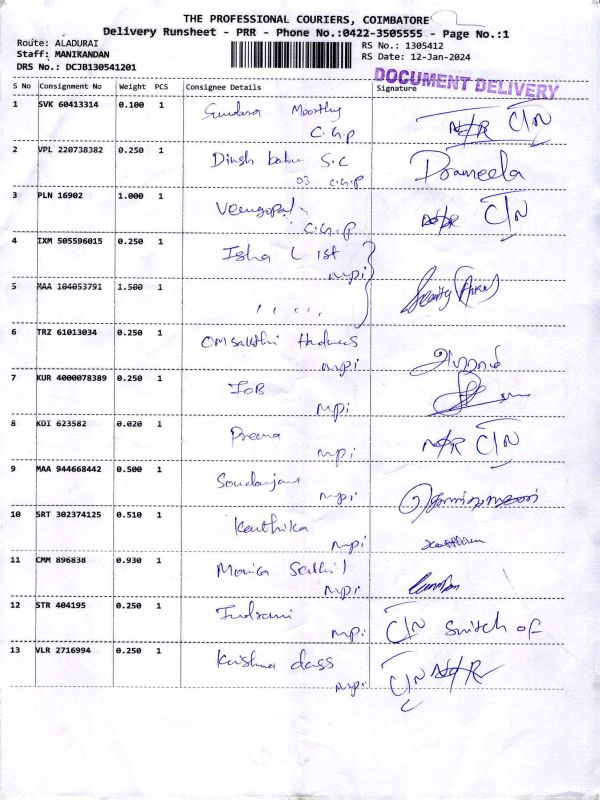 THE PROFESSIONAL COURIERS, COIMBATORE
Delivery Runsheet - PRR - Phone No.:0422-3505555 - Page No.:1
Route: ALADURAI
RS No.: 1305412
Staff: MANIKANDAN
RS Date: 12-Jan-2024
DRS No.: DCJB130541201
DOCUMENT DELIVERY
S No Consignment No Weight PCS Consignee Details Signature
1 SVK 60413314 0.100 1 Sundara Moorthy N/R C/N
C.G.P
2 VPL 220738382 0.250 1 Dinsh babu S.C Prameela
03 C.G.P
3 PLN 16902 1.000 1 Venugopal N/R C/N
C.G.P
4 IXM 505596015 0.250 1 Isha L Ist
mpi
5 MAA 104053791 1.500 1 , , , , ,
6 TRZ 61013034 0.250 1 OMSakthi
mpi
7 KUR 4000078389 0.250 1 IOB
mpi
8 KDI 623582 0.020 1 Prema N/R C/N
mpi
9 MAA 944668442 0.500 1
mpi
10 SRT 302374125 0.510 1 Keuthika
mpi
11 CMM 896838 0.930 1 Monica
mpi
12 STR 404195 0.250 1 Indrani C/N Switch of
mpi
13 VLR 2716994 0.250 1 Krishna dass C/N N/R
mpi